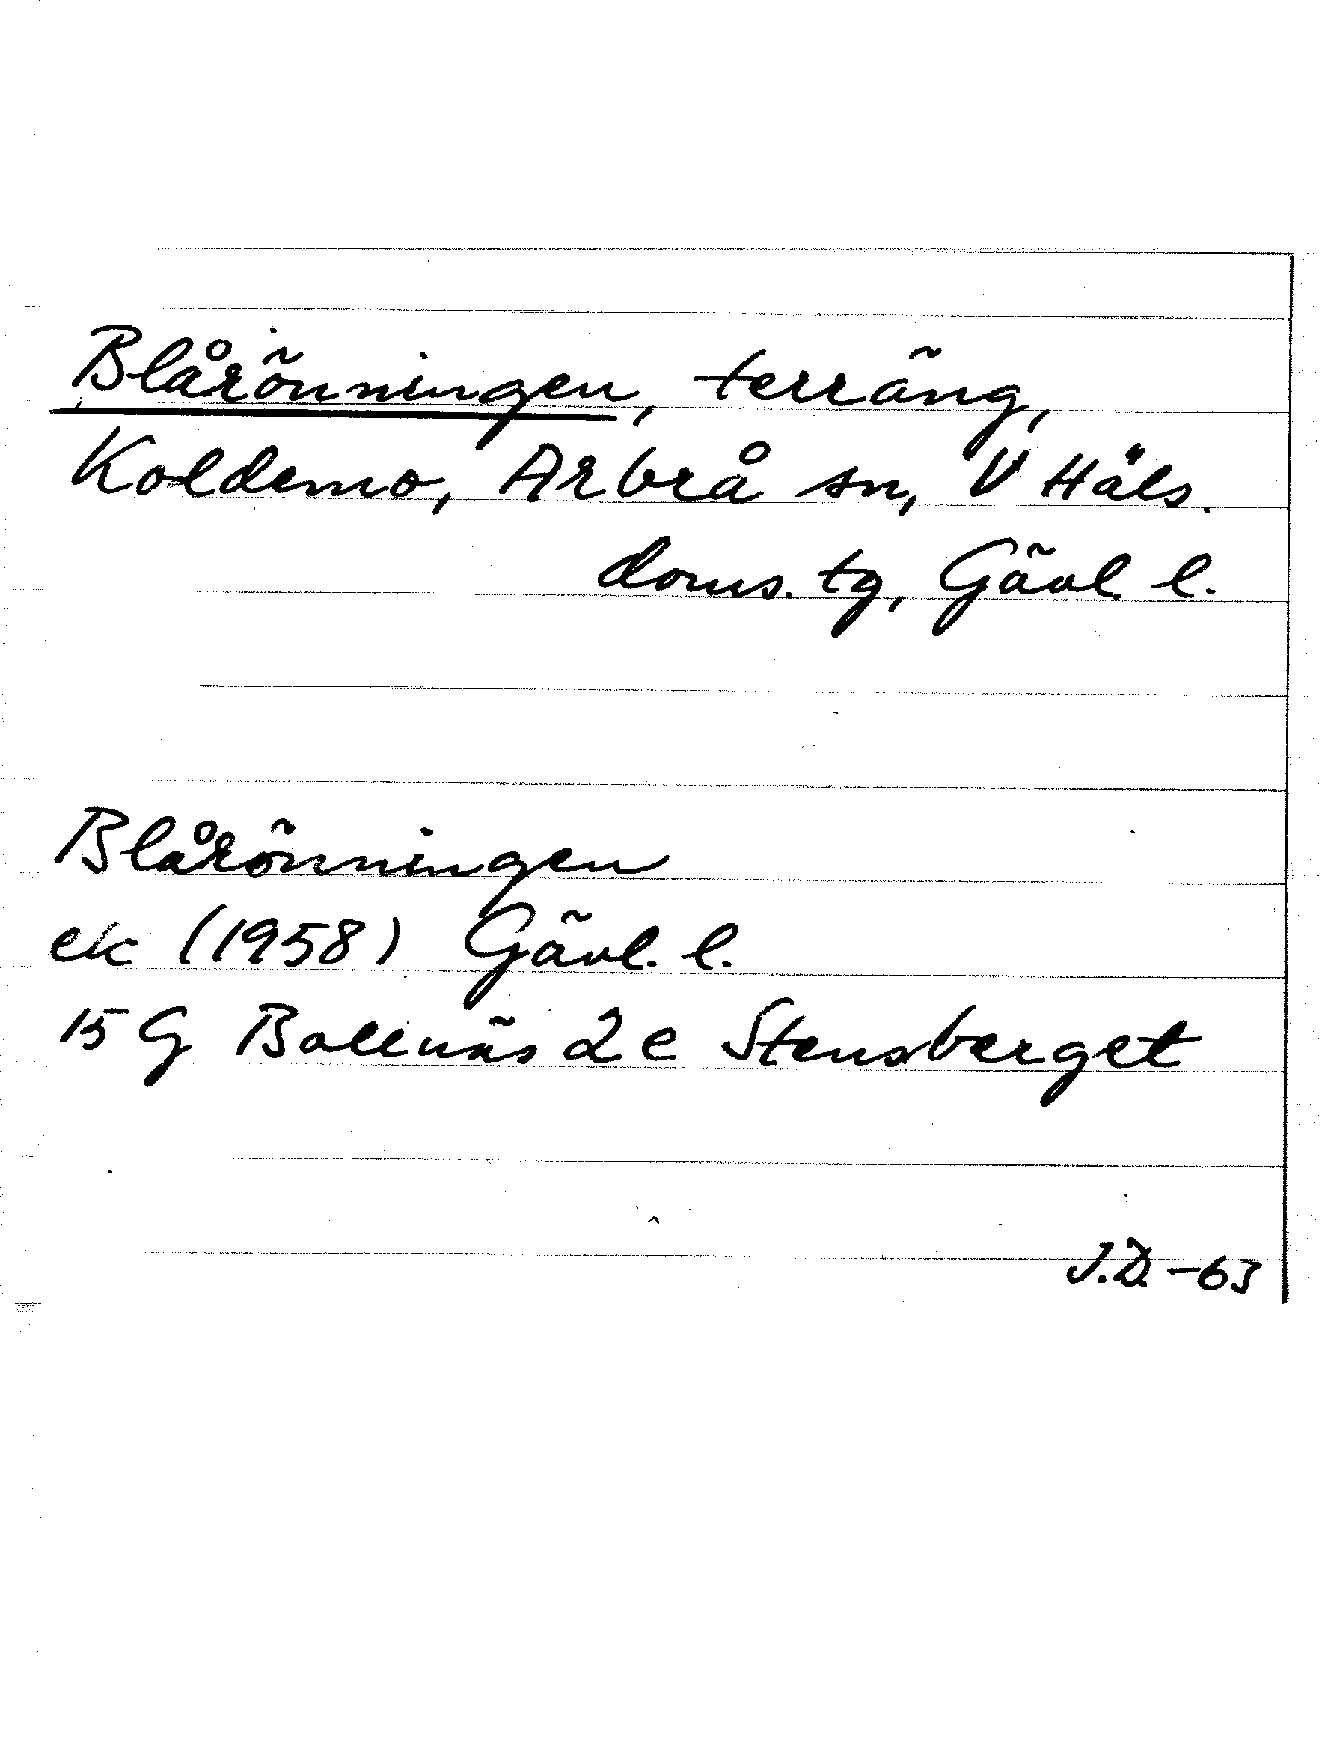 Blårönningen, terräng,
Koldemo, Arbrå sn, V Häls.
doms. tg, Gävl. l.
Blårönningen
ek (1958) Gävl. l.
15 G Bollnäs 2 e Stensberget
J.D. -63